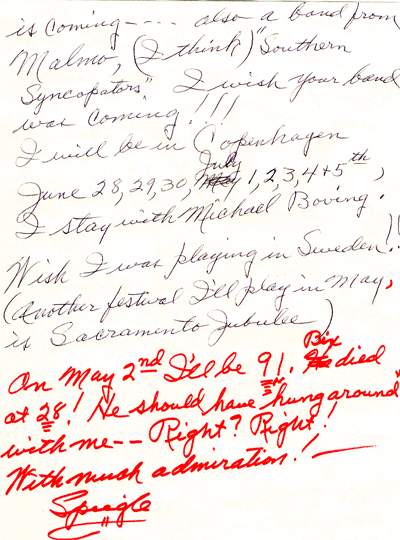 is coming---- also a band from
Malmo, (I think) "Southern
Syncopators" I wish your band
was coming!!!
I will be in Copenhagen
July
June 28, 29, 30, May 1, 2, 3, 4 + 5th,
I stay with Michael Boving.
Wish I was playing in Sweden!!
(Another festival I'll play in May,
is Sacramento Jubilee)
On May 2nd I'll be 91. Bix He died
at 28! He should have "hung around"
with me-- Right? Right!
With much admiration!—
Spiegle